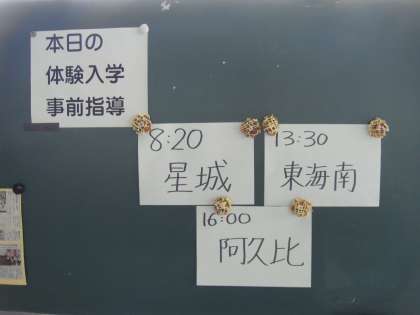 本日の
体験入学
事前指導
8:20
星城
13:30
東海南
16:00
阿久比